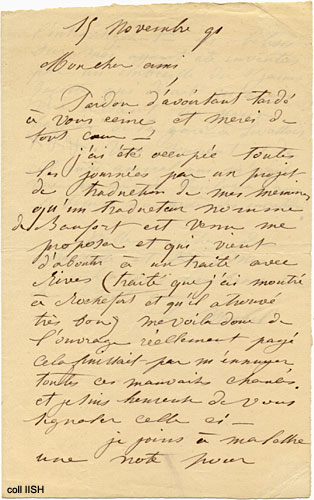 15 Novembre 91
Mon cher ami
Pardon d'avoir tant tardé
à vous écrire et merci de
tout cœur —
j'ai été occupée toutes
les journées par un projet
de traduction de mes mémoires
qu'un traducteur nommé
de Beaufort est venu me
proposer et qui vient
d'aboutir à un traité avec
Rives (traité que j'ai montré
à Rochefort et qu'il a trouvé
très bon) me voilà donc de
l'ouvrage réellement payé
cela finissait par m'ennuyer
toutes ces mauvais
et je suis heureuse de vous
signaler celle ci —
je joins à ma lettre
une note pour
coll IISH